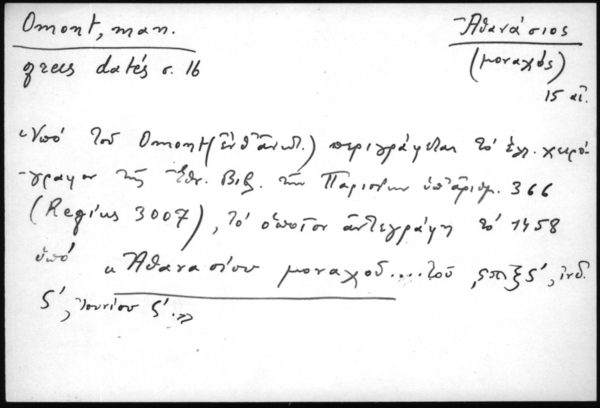 Omont, man.
grecs datés σ. 16
Ἀθανάσιος
(μοναχός)
15 αἰ.
Ὑπό τοῦ Omont (ἔνθ' ἀνωτ.) περιγράφεται τό ἑλ. χειρό-
γραφον τῆς Ἐθν. Βιβ. τῶν Παρισίων ὑπ' ἀριθμ. 366
(Regius 3007), τό ὁποῖον ἀντεγράφη τό 1458
ὑπό « Ἀθανασίου μοναχοῦ.... τοῦ ,ςϡξς', ἰνδ.
ς', Ἰουνίου ς'.»